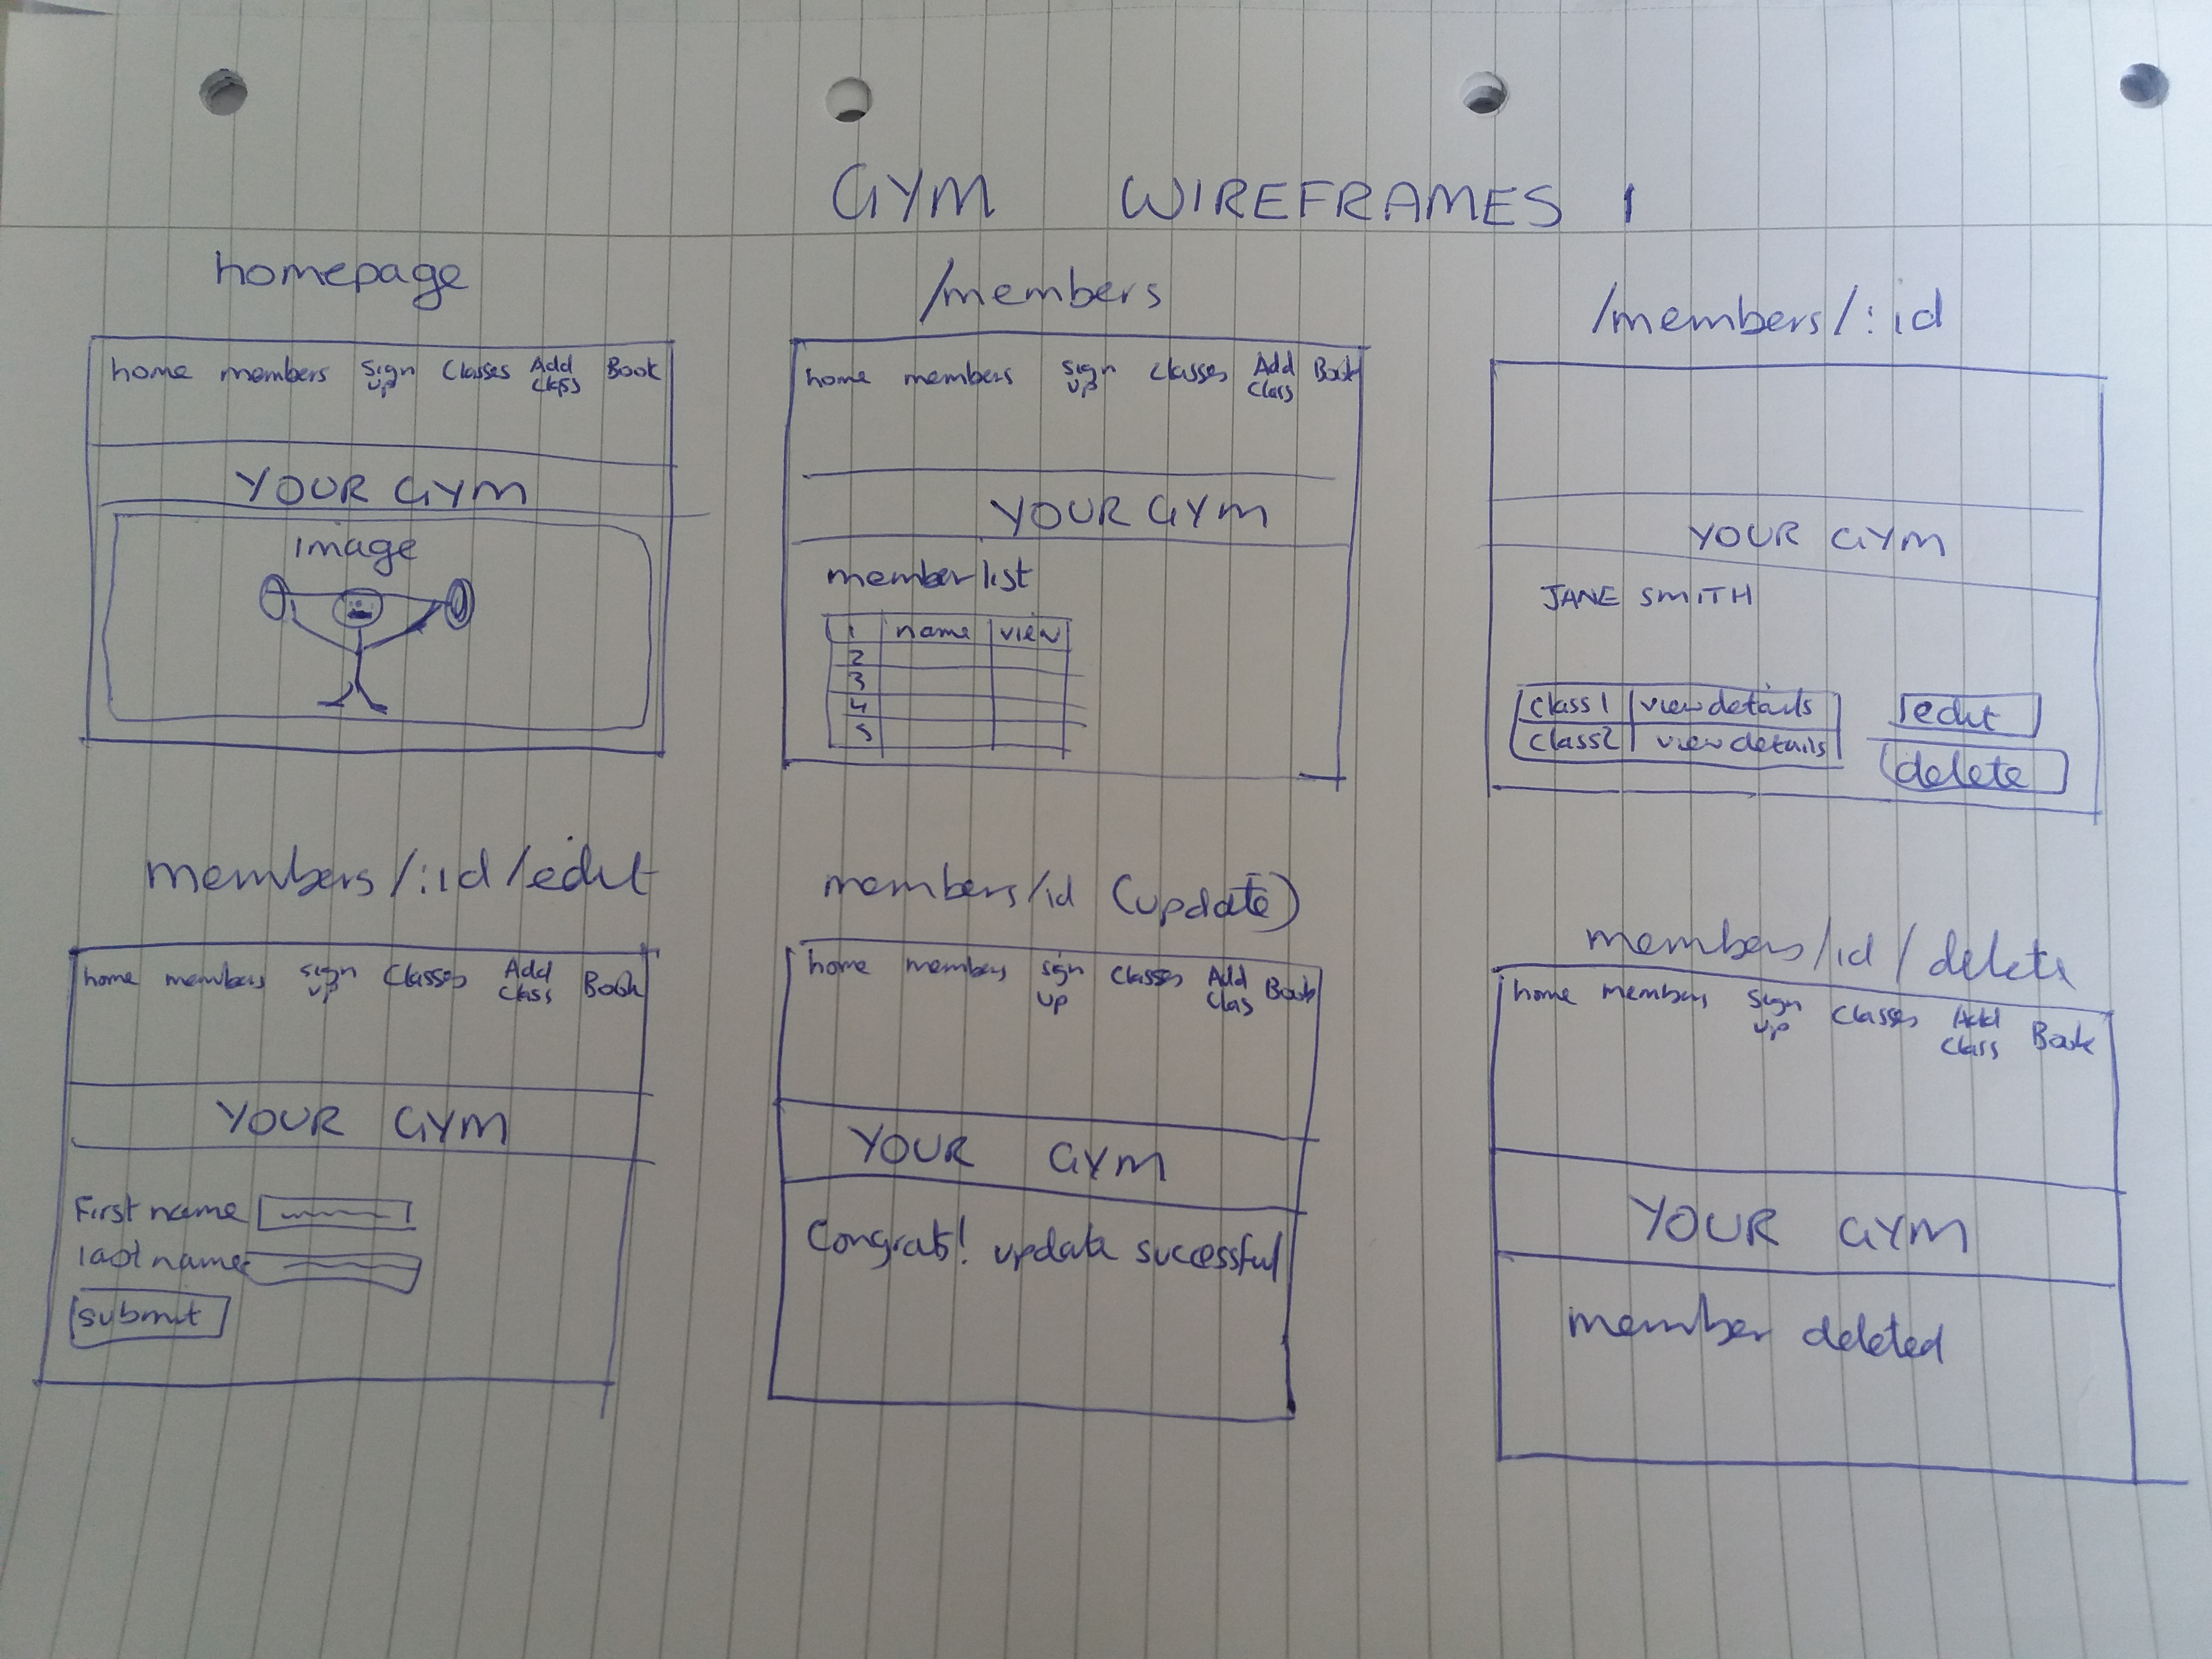 GYM WIREFRAMES 1
homepage
home members Sign up Classes Add Class Book
YOUR GYM
image
/members
home members sign up classes Add Class Book
YOUR GYM
member list
1 name view
2
3
4
5
/members/:id
YOUR GYM
JANE SMITH
class 1 view details
class 2 view details
edit
delete
members/:id/edit
home members sign up Classes Add Class Book
YOUR GYM
First name
last name
submit
members/id (update)
home members sign up Classes Add Clas Book
YOUR GYM
Congrats! update successful
members/id/delete
home members sign up Classes Add Class Book
YOUR GYM
member deleted